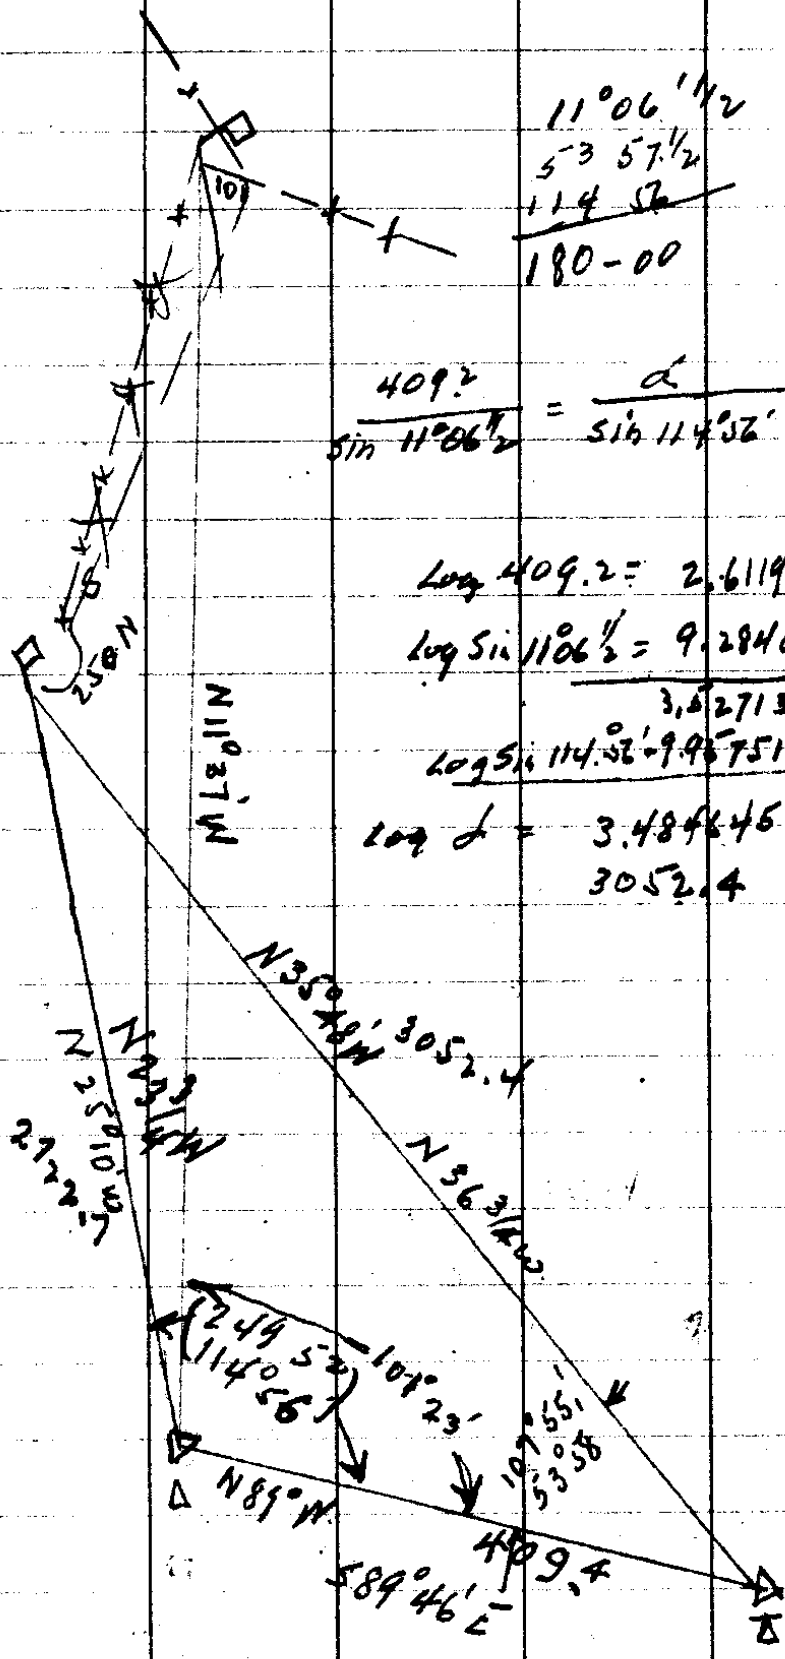 11°06'1/2
53 57.1/2
114 56
180-00
101
409.2 / sin 11°06'1/2 = d / sin 114°56'
Log 409.2 = 2.6119
Log Sin 11°06'1/2 = 9.2846
3.32713
Log Sin 114.°56' - 9.95751
Log d = 3.484645
3052.4
N 11°37' W
N 35° 48' W 3052.4
N 36 3/4 W
2722.7
249 52
114° 56'
101° 23'
107° 55'
53° 58
N 89° W
409.4
S 89° 46' E